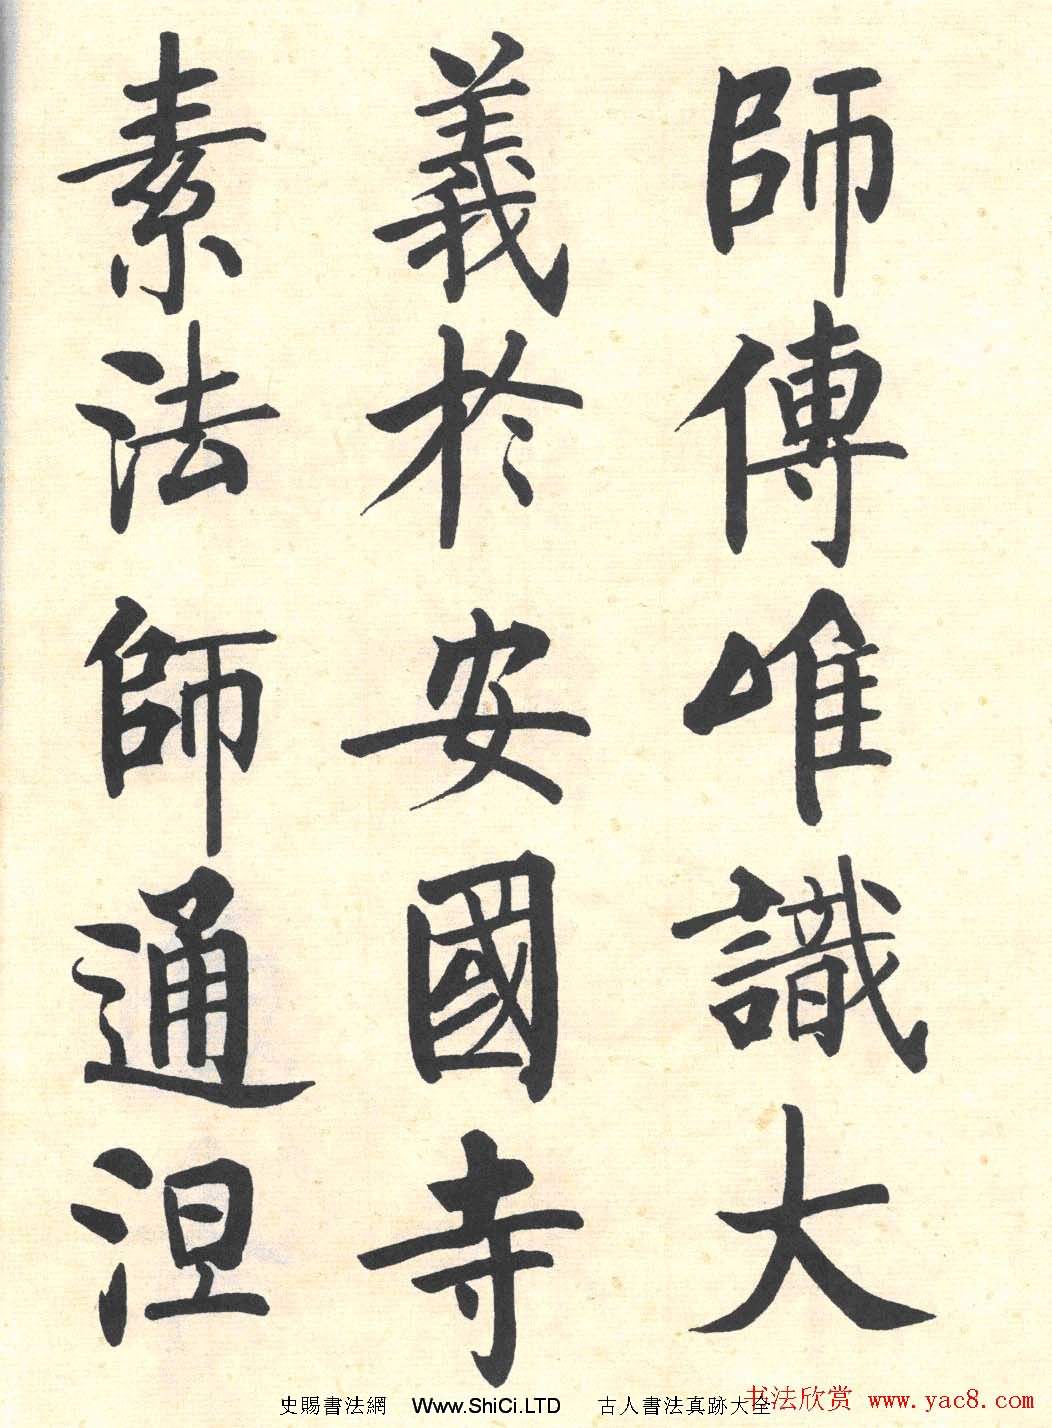 師傳唯識大
義於安國寺
素法師通涅
史賜書法網 Www.ShiCi.LTD 古人書法真跡大全
书法欣赏 www.yac8.com